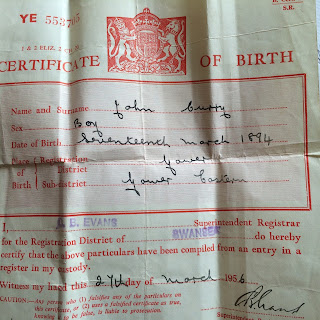 YE 553705
S.R.
1 & 2 ELIZ. 2 CH.
CERTIFICATE OF BIRTH
Name and Surname John Curry
Sex Boy
Date of Birth Seventeenth March 1894
Place of Birth { Registration District Gower
Sub-district Gower Eastern
I, D. B. EVANS Superintendent Registrar
for the Registration District of SWANSEA do hereby
certify that the above particulars have been compiled from an entry in a
register in my custody.
Witness my hand this 27th day of March 1956
CAUTION:— Any person who (1) falsifies any of the particulars on
this certificate, or (2) uses a falsified certificate as true,
knowing it to be false, is liable to prosecution.